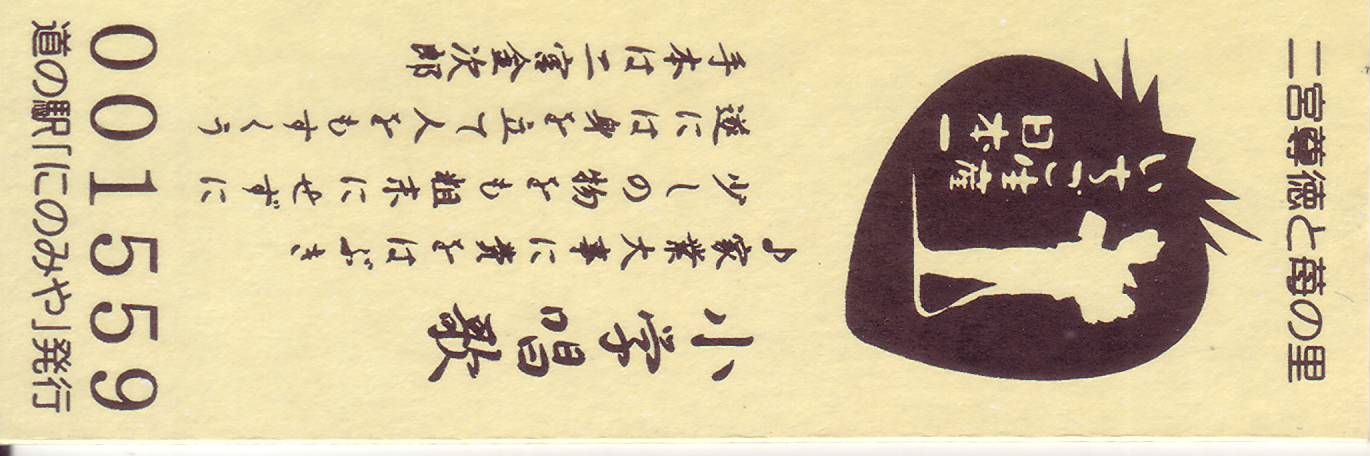 二宮尊徳と苺の里
いちご生産
日本一
小学唱歌
♪家業大事に費をはぶき
少しの物をも粗末にせずに
遂には身を立て人をもすくう
手本は二宮金次郎
001559
道の駅「にのみや」発行